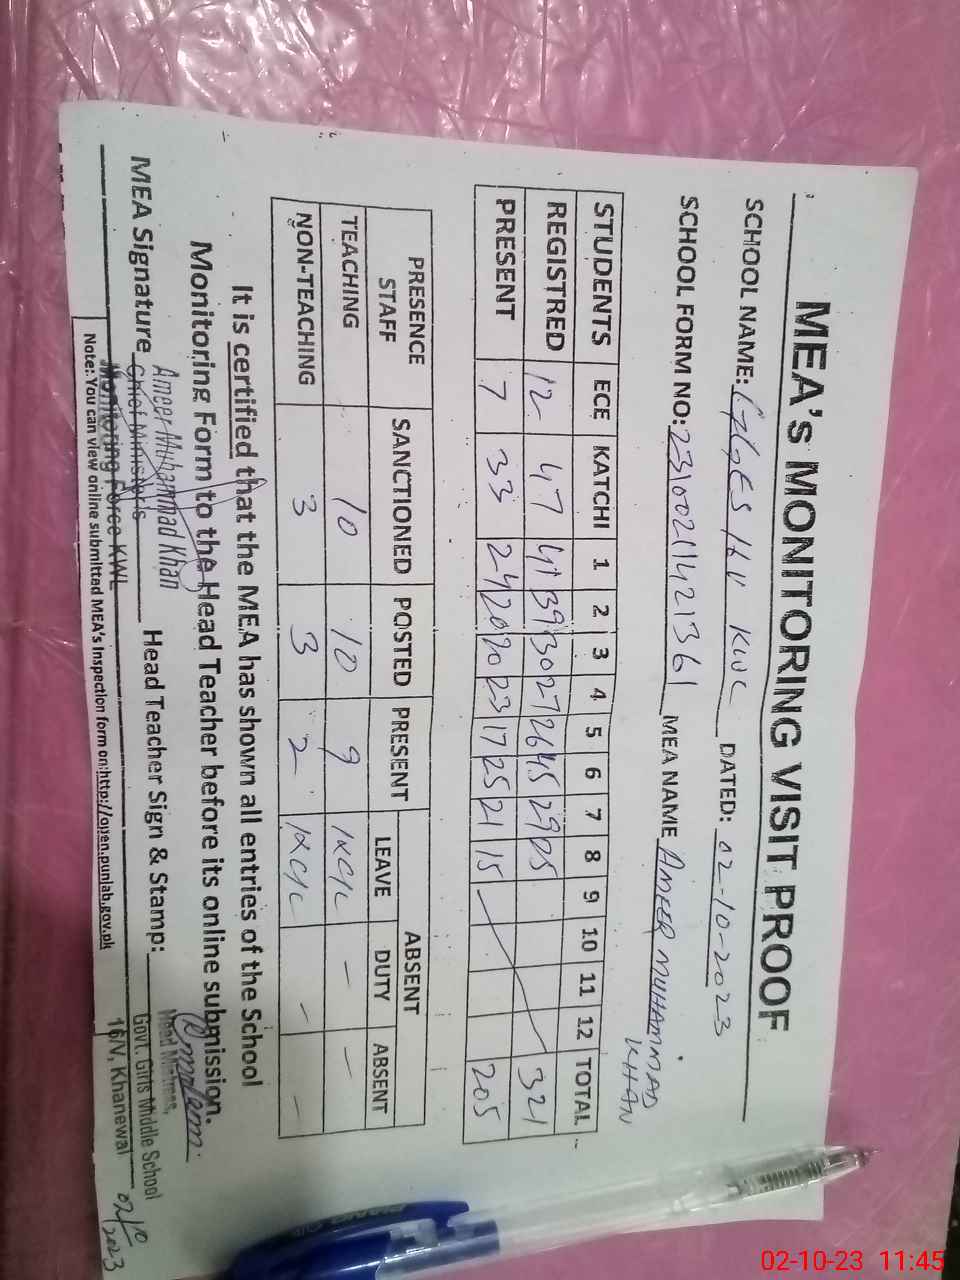 MEA's MONITORING VISIT PROOF
SCHOOL NAME: GGES 16V KWL DATED: 02-10-2023
SCHOOL FORM NO: 2310021142136 MEA NAME AMEER MUHAMMAD KHAN
STUDENTS ECE KATCHI 1 2 3 4 5 6 7 8 9 10 11 12 TOTAL
REGISTRED 12 47 41 39 30 27 26 45 29 25 321
PRESENT 7 33 24 20 20 23 17 25 21 15 205
PRESENCE STAFF SANCTIONED POSTED PRESENT ABSENT
LEAVE DUTY ABSENT
TEACHING 10 10 9 - -
NON-TEACHING 3 3 2 - -
It is certified that the MEA has shown all entries of the School
Monitoring Form to the Head Teacher before its online submission.
MEA Signature Head Teacher Sign & Stamp:
Ameer Muhammad Khan
Chief Minister's
Monitoring Force KWL
Head Mistress,
Govt. Girls Middle School
16/V, Khanewal
02/10/2023
Note: You can view online submitted MEA's Inspection form on:http://open.punjab.gov.pk
02-10-23 11:45